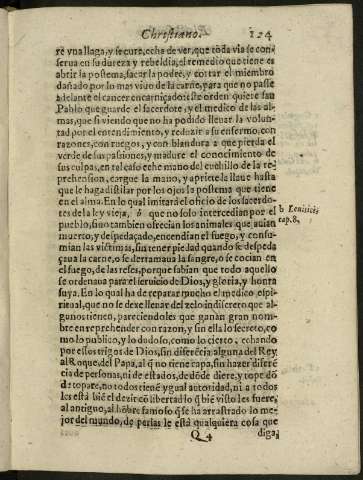 Christiano. 124
re vna llaga, y se cure, echa de ver, que toda via se con-
serua en su dureza y rebeldia, el remedio que tiene es
abrir la postema, sacar la podre, y cortar el miembro
dañado por lo mas viuo de la carne, para que no passe
adelante el cancer encarniçado: este orden quiere san
Pablo que guarde el sacerdote, y el medico de las al-
mas, que si viendo que no ha podido lleuar la volun-
tad por el entendimiento, y reduzir a su enfermo, con
razones, con ruegos, y con blandura a que pierda el
verde de sus passiones, y madure el conocimiento de
sus culpas, en tal caso eche mano del cuchillo de la re-
prehension, cargue la mano, y apriete la llaue hasta
que le haga distilar por los ojos la postema que tiene
en el alma. En lo qual imitará el oficio de los sacerdo-
tes de la ley vieja, b que no solo intercedian por el
pueblo, sino tambien ofrecian los animales que auian
muerto, y despedaçado, encendian el fuego, y consu-
mian las victimas, sin tener piedad quando se despeda
çaua la carne, o se derramaua la sangre, o se cocian en
el fuego, de las reses, porque sabian que todo aquello
se ordenaua para el seruicio de Dios, y gloria, y honra
suya. En lo qual ha de reparar mucho el medico espi-
ritual, que no se dexe lleuar del zelo indiscreto que al-
gunos tienen, pareciendoles que ganan gran nom-
bre en reprehender con razon, y sin ella lo secreto, co
mo lo publico, y lo dudoso, como lo cierto, echando
por essos trigos de Dios, sin diferēcia alguna del Rey,
al Roque, del Papa, al q̄ no tiene capa, sin hazer diferē
cia de personas, ni de estados, de dōde diere, y tope dō
de topare, no todos tienē ygual autoridad, ni a todos
les està biē el dezir cō libertad lo q̄ biē visto les fuere,
al anciguo, al hōbre famoso q̄ se ha arrastrado lo me-
jor del mundo, de perlas le està qualquiera cosa que
Q 4 diga,
b Leuiticis
cap. 8.